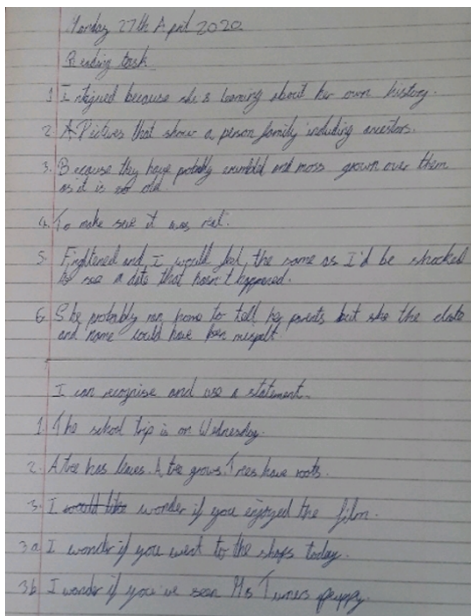 Monday 27th April 2020
Reading task
1 Intrigued because she's learning about her own history.
2 A Pictures that show a person family including ancestors.
3. Because they have probably crumbled and moss grown over them
as it is so old.
4. To make sure it was real.
5. Frightened and I would feel the same as I'd be shocked
to see a date that hasn't happened.
6. She probably ran home to tell her parents but she the date
and name could have been mispelt.
I can recognise and use a statement.
1. The school trip is on Wednesday.
2. A tree has leaves. A tree grows. Trees have roots.
3. I would like wonder if you enjoyed the film.
3a I wonder if you went to the shops today.
3b I wonder if you've seen Ms Turners puppy.